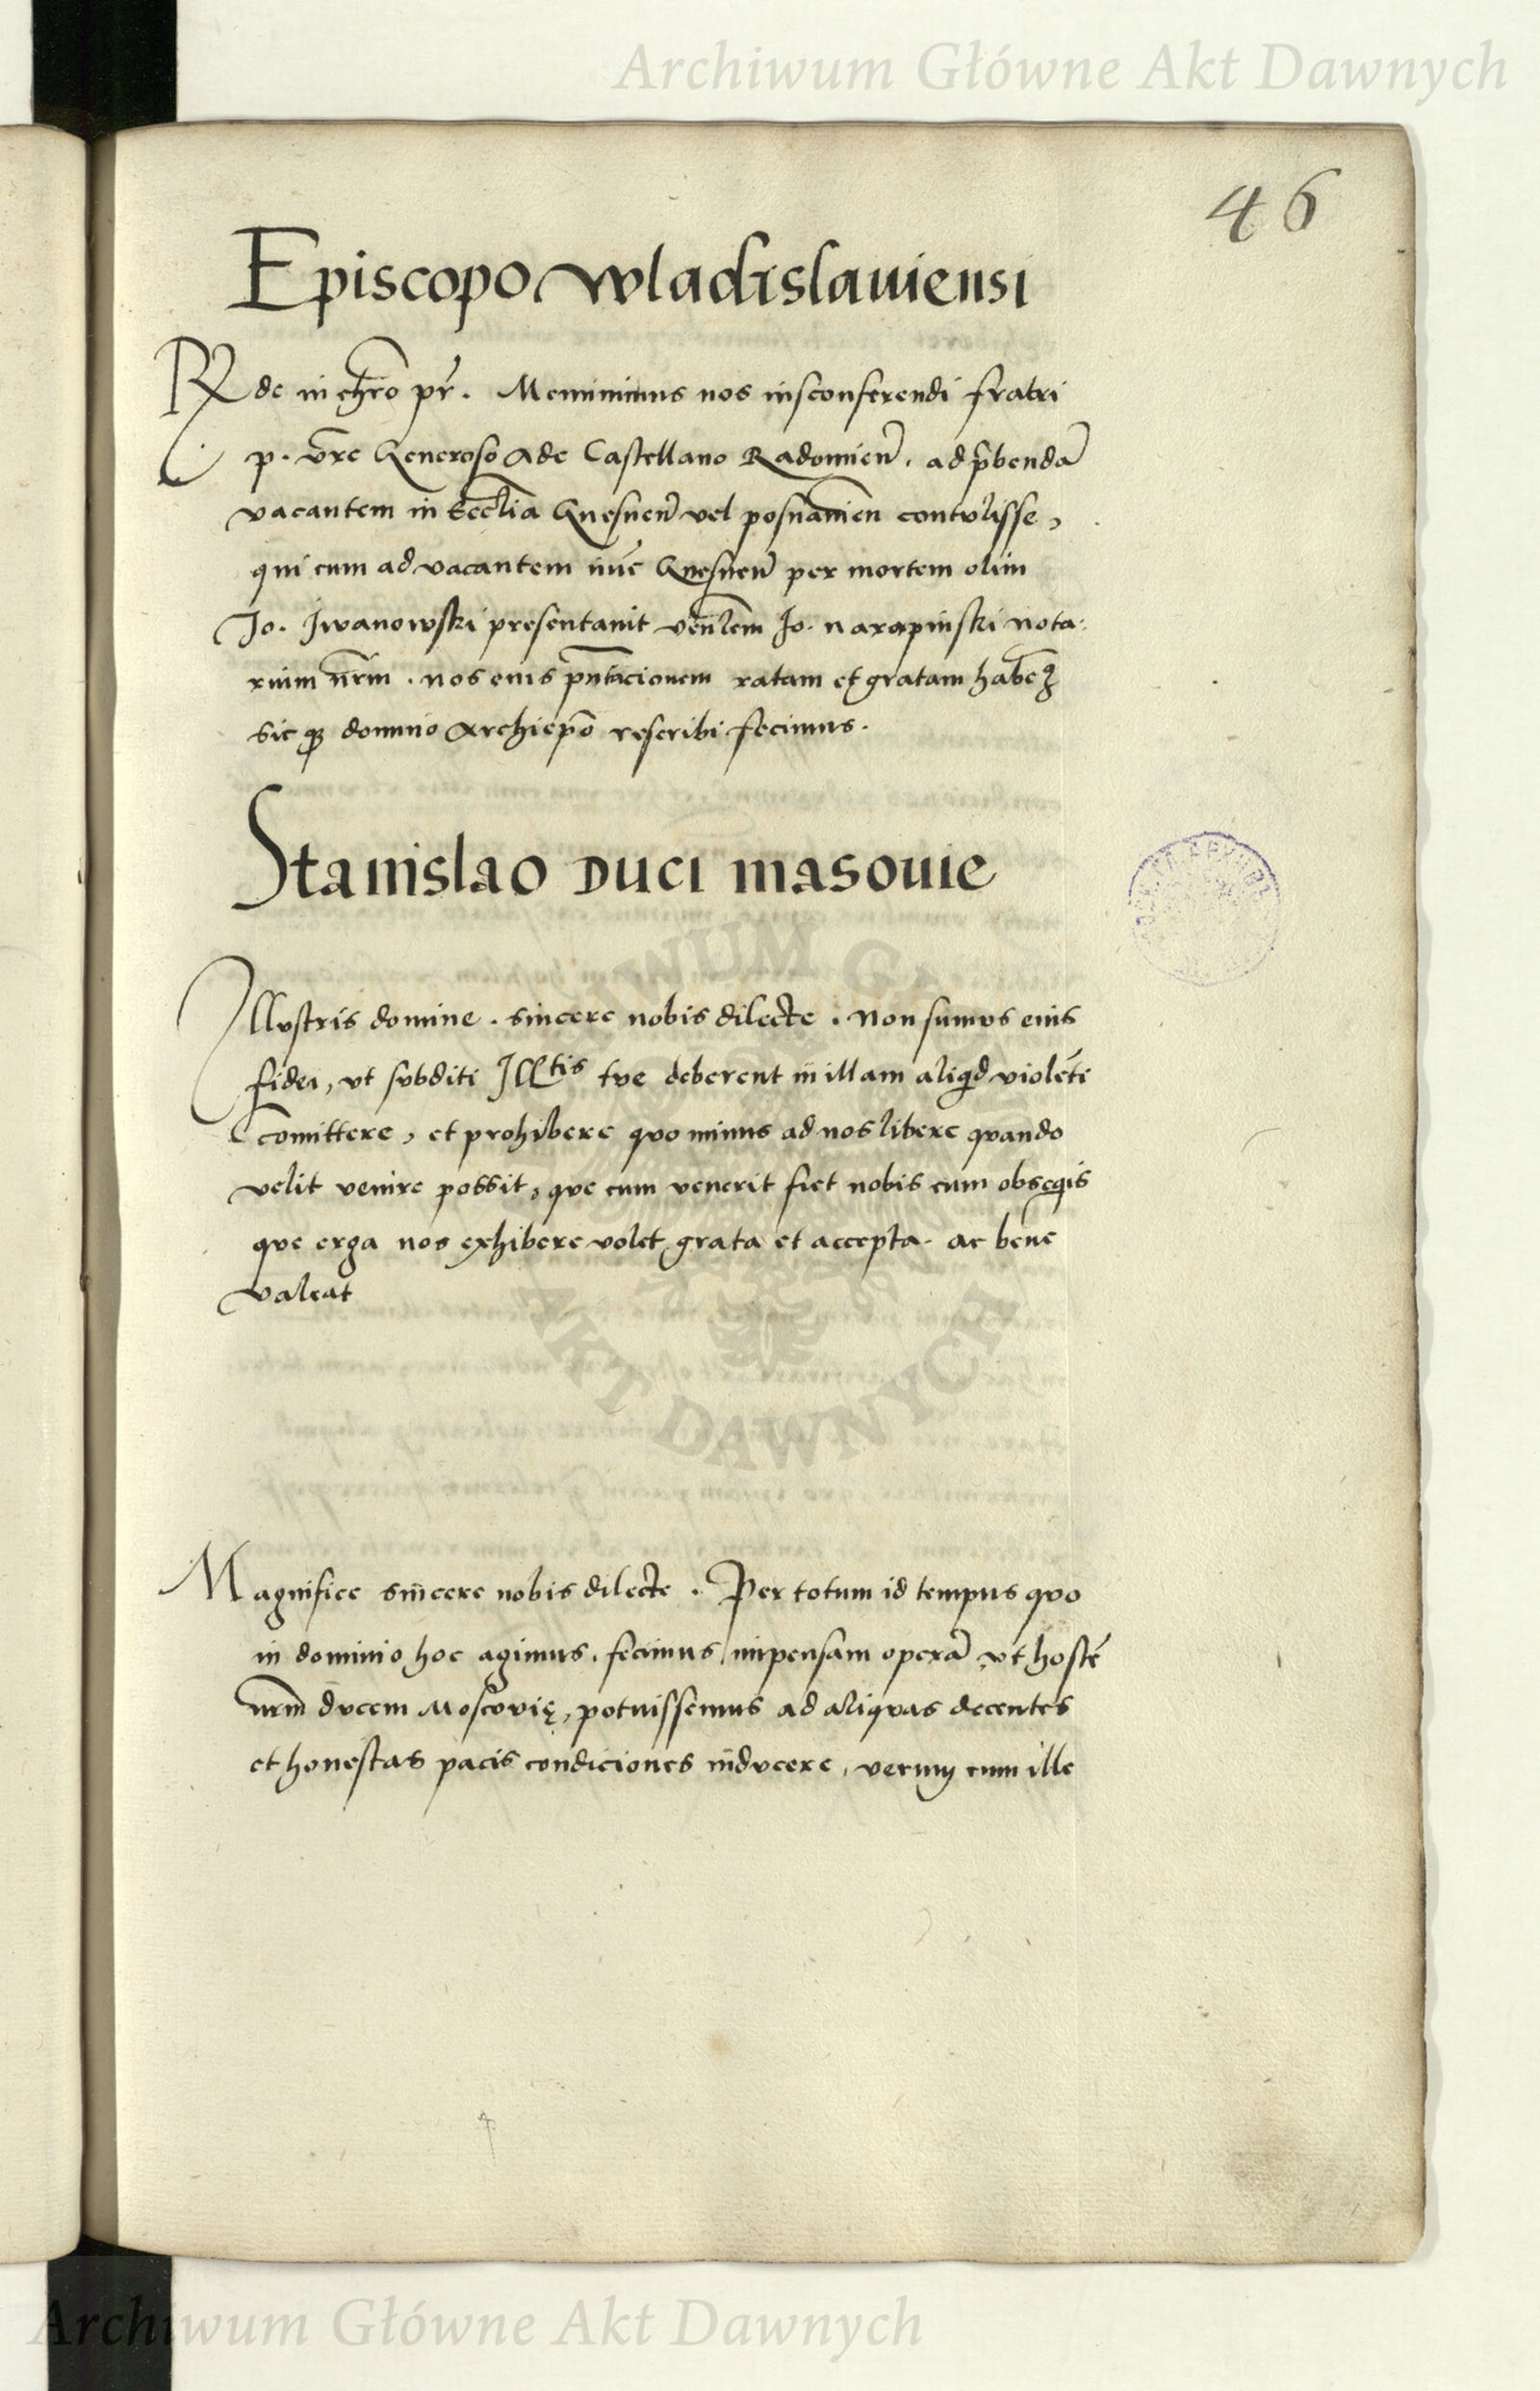 Archiwum Główne Akt Dawnych
46
Episcopo Wladislauiensi
Rde in chro pr̃. Meminimus nos ius conferendi fratri
p. vr̃e Generoso Ade Castellano Radomień. ad p̄bendā
vacantem in Eccl̃ia Gnesneñ vel posnanień contulisse,
qui cum ad vacantem nūc Gnesneñ per mortem olim
Jo. Jwanowski presentauit veñlem Jo. narapinski nota-
rium nr̃m. nos eius pñtacionem ratam et gratam habem9
sic q3 domino Archiepõ rescribi fecimus.
Stanislao Duci masouie
Jllustris domine. sincere nobis dilecte. Non sumus eius
fidei, vt subditi Jlltis tue deberent in illam aliqd violēti
cōmittere, et prohibere quo minus ad nos libere quando
velit venire possit, que cum venerit fiet nobis cum obseqis
que erga nos exhibere volet grata et accepta. ac bene
valeat
Magnifice sincere nobis dilecte. Per totum id tempus quo
in dominio hoc agimus, fecimus impensam operā vt hostē
nr̃m ducem Moscouię, potuissemus ad aliquas decentes
et honestas pacis condiciones inducere, verum cum ille
AKT DAWNYCH
Archiwum Główne Akt Dawnych